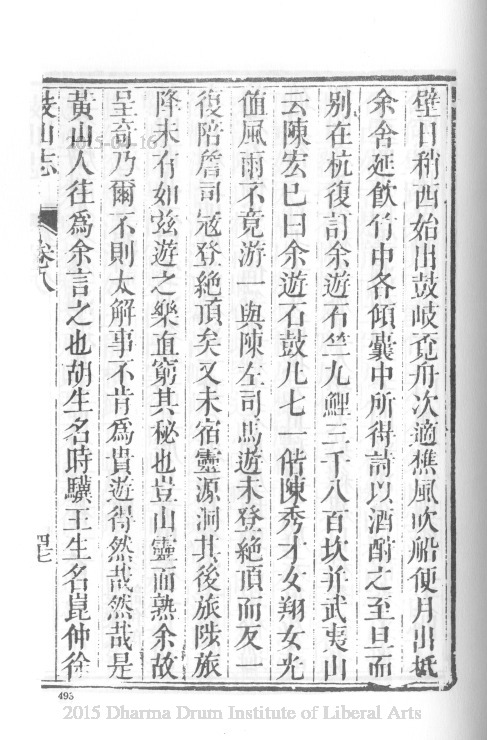 壁日稍西始出鼓岐覓舟次適樵風吹船便月出抵
余舍延飲竹中各傾囊中所得詩以酒酹之至旦而
別在杭復訂余遊石竺九鯉三千八百坎并武夷山
云陳宏巳曰余遊石鼓凡七一偕陳秀才女翔女光
值風雨不竟游一與陳左司馬遊未登絶頂而反一
復陪詹司冦登絶頂矣又未宿靈源洞其後旅陟旅
降未有如兹遊之樂直窮其秘也豈山靈而熟余故
呈奇乃爾不則太解事不肯爲貴遊得然哉然哉是
黃山人徃爲余言之也胡生名時驥王生名崑仲徐
鼓山志
卷八
四七
2015-04-16
495
2015 Dharma Drum Institute of Liberal Arts